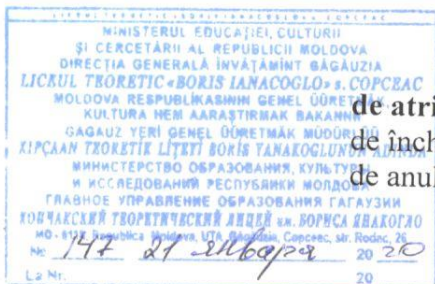 MINISTERUL EDUCAȚIEI, CULTURII
ȘI CERCETĂRII AL REPUBLICII MOLDOVA
DIRECȚIA GENERALĂ ÎNVĂȚĂMÎNT GĂGĂUZIA
LICEUL TEORETIC «BORIS IANACOGLO» s. COPCEAC
MOLDOVA RESPUBLİKASININ GENEL ÜÜRETİM
KULTURA HEM AARAŞTIRMAK BAKANNII
GAGAUZ YERİ GENEL ÜÜRETMÄK MÜDÜRLÜÜ
KIPÇAAN TEORETİK LİŢEYİ BORİS YANAKOGLUNUN ADINDA
МИНИСТЕРСТВО ОБРАЗОВАНИЯ, КУЛЬТУРЫ
И ИССЛЕДОВАНИЙ РЕСПУБЛИКИ МОЛДОВА
ГЛАВНОЕ УПРАВЛЕНИЕ ОБРАЗОВАНИЯ ГАГАУЗИИ
КОПЧАКСКИЙ ТЕОРЕТИЧЕСКИЙ ЛИЦЕЙ им. БОРИСА ЯНАКОГЛО
Republica Moldova, UTA Găgăuzia, Copceac, str.
№ 147 21 января 20 20
La Nr. 20
de atri
de înch
de anul